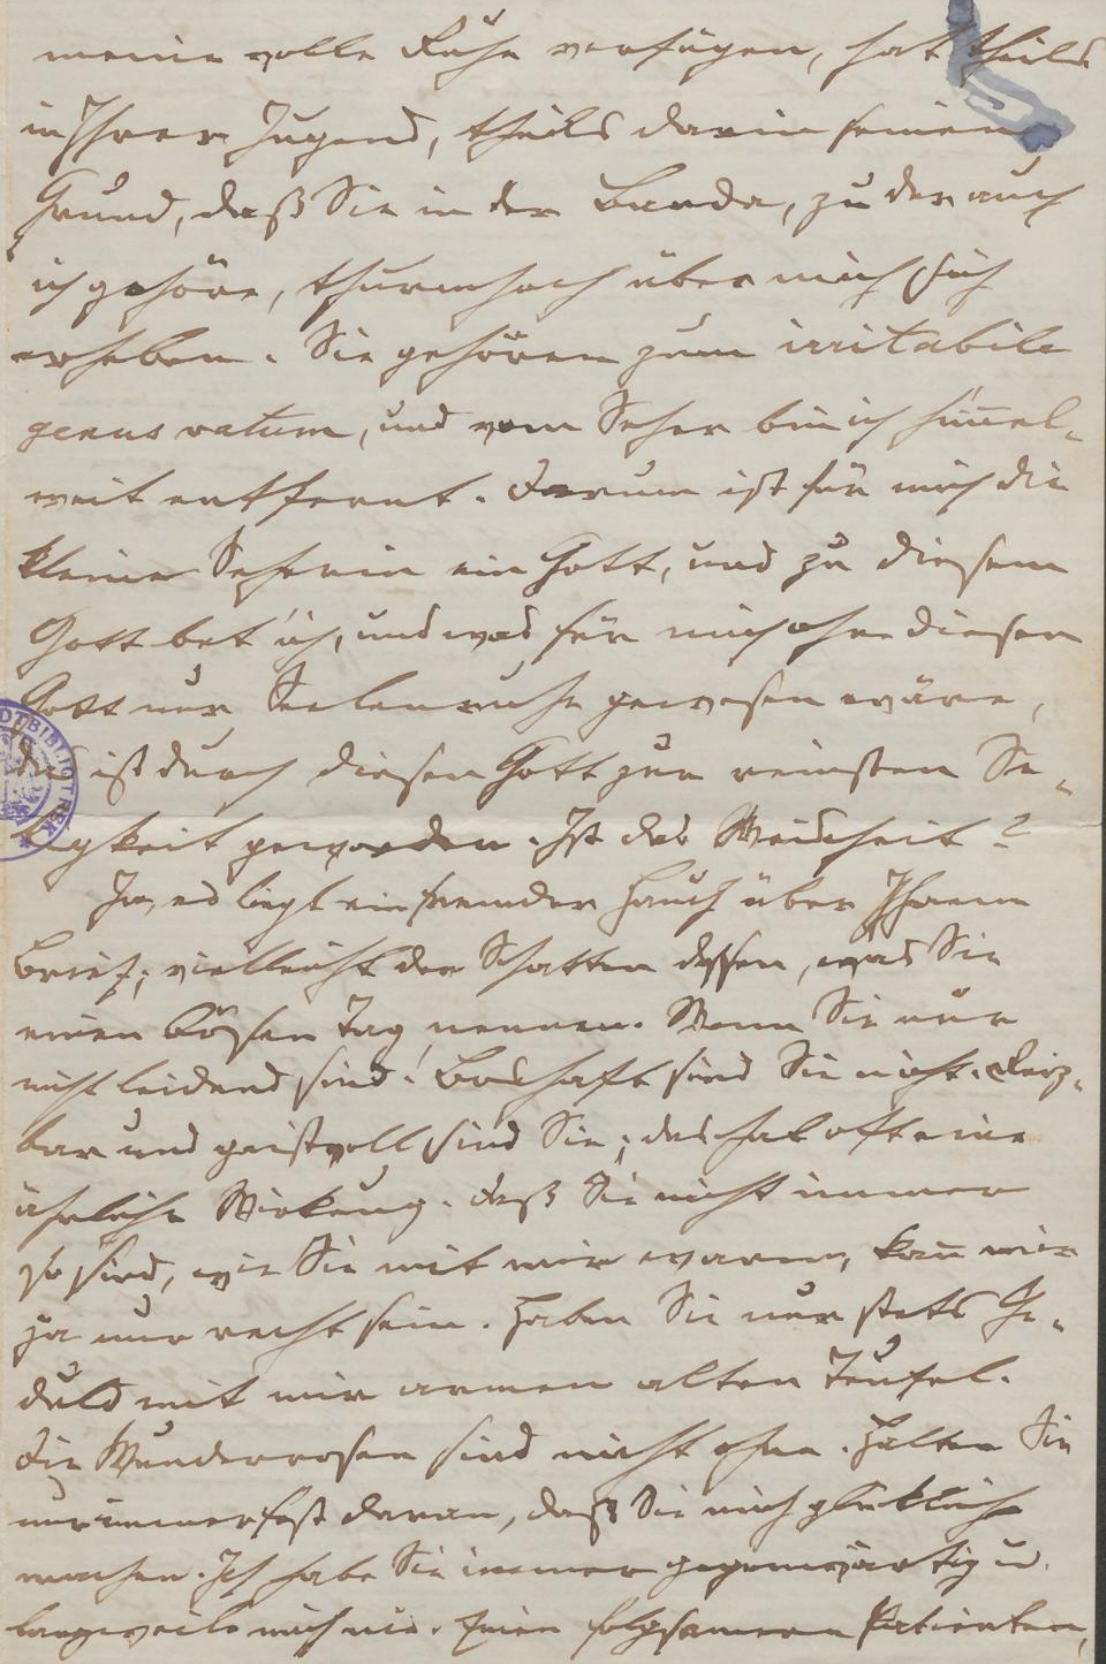 meine volle Ruhe verfügen, hat theils
in Ihrer Jugend, theils darin seinen
Grund, daß Sie in der Bande, zu der auch
ich gehöre, thurmhoch über mich sich
erheben. Sie gehören zum irritabile
genus vatum, und vom Seher bin ich him̄el-
weit entfernt. Darum ist für mich die
kleine Seherin ein Gott, und zu diesem
Gott bet' ich, und was für mich ohne diesen
Gott nur Seelenruhe gewesen wäre,
das ist durch diesen Gott zur reinsten Se-
ligkeit geworden. Ist das Weisheit?
Ja, es liegt ein fremder Hauch über Ihrem
Brief; vielleicht der Schatten dessen, was Sie
einen bösen Tag nennen. Wenn Sie nur
nicht leidend sind! Boshaft sind Sie nicht. Reiz-
bar und geistvoll sind Sie; das hat oft eine
ähnliche Wirkung. Daß Sie nicht immer
so sind, wie Sie mit mir waren, kan̄ mir
ja nur recht sein. Haben Sie nur stets Ge-
duld mit mir armen alten Teufel.
Die Wunderrosen sind nicht ohne. Halten Sie
nur immer fest daran, daß Sie mich glücklich
machen. Ich habe Sie immer gegenwärtig u.
langweile mich nie. Einen folgsameren Patienten,
DTBIBLIOTHEK